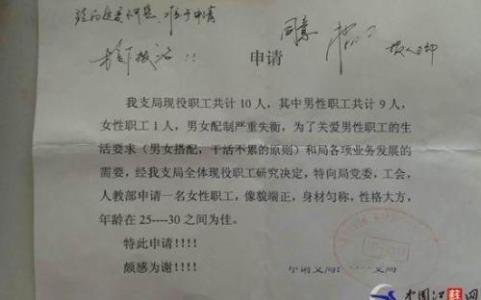 同意
申请
我支局现役职工共计 10 人，其中男性职工共计 9 人，
女性职工 1 人，男女配制严重失衡，为了关爱男性职工的生
活要求（男女搭配，干活不累的原则）和局各项业务发展的
需要，经我支局全体现役职工研究决定，特向局党委，工会，
人教部申请一名女性职工，像貌端正，身材匀称，性格大方，
年龄在 25----30 之间为佳。
特此申请!!!!
颇感为谢!!!!
申请支局:
支局
中国江苏网